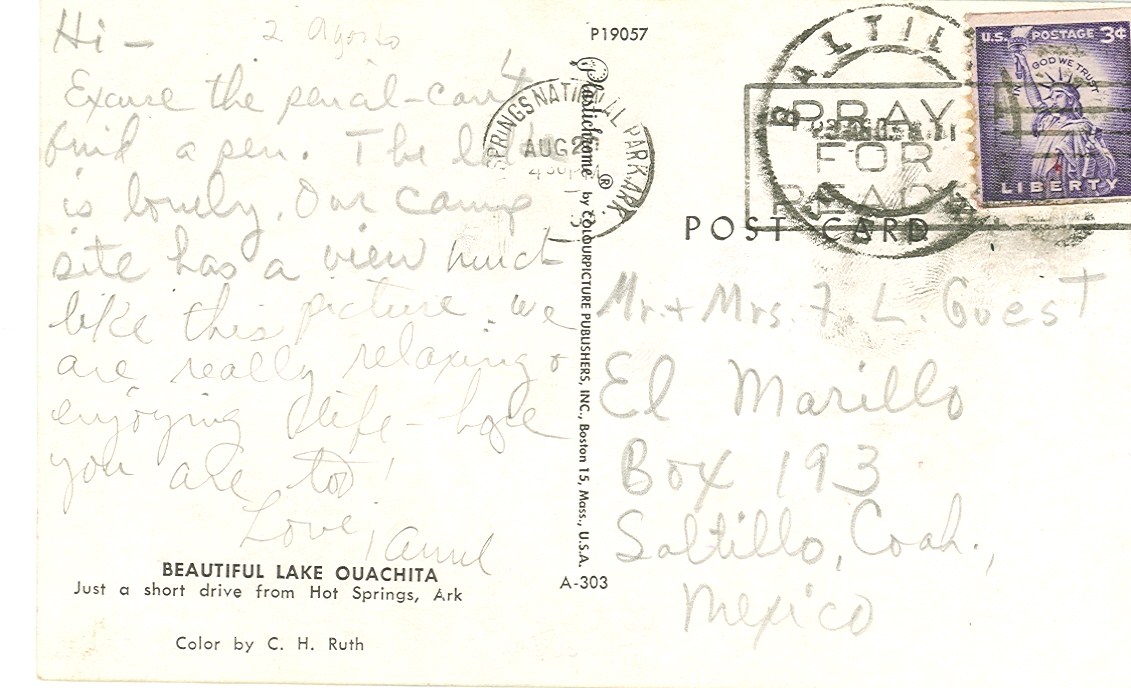 Hi -
2 Agosto
Excuse the pencil - can't
find a pen. The lake
is lovely. Our camp
site has a view much
like this picture. we
are really relaxing +
enjoying life - hope
you are too!
Love,
BEAUTIFUL LAKE OUACHITA
Just a short drive from Hot Springs, Ark
Color by C. H. Ruth
P19057
Plastichrome ® by COLOURPICTURE PUBLISHERS, INC., Boston 15, Mass., U.S.A.
A-303
SPRINGS NATIONAL PARK ARK
AUG 2
4 30 PM
PRAY
FOR
PEACE
U.S. POSTAGE 3¢
IN GOD WE TRUST
LIBERTY
POST CARD
Mr. + Mrs. F. L. Guest
El Marillo
Box 193
Saltillo, Coah.,
Mexico